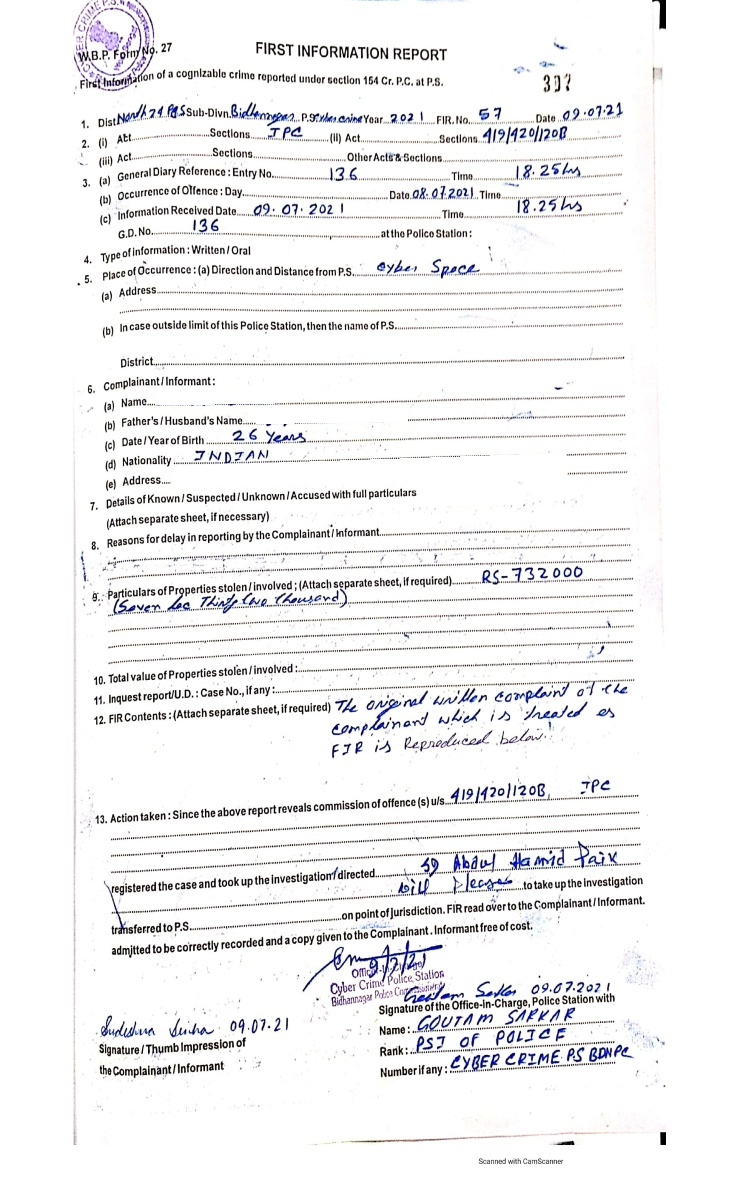 CYBER CRIME P.S.
W.B.P. Form No. 27
FIRST INFORMATION REPORT
First Information of a cognizable crime reported under section 154 Cr. P.C. at P.S.
1. Dist North 24 PGS Sub-Divn. Bidhannagar P.S. Cyber crime Year 2021 FIR. No. 57 Date 09.07.21
2. (i) Act Sections IPC (ii) Act Sections 419/420/120B
(iii) Act Sections Other Acts & Sections
3. (a) General Diary Reference : Entry No. 136 Time 18.25 hrs
(b) Occurrence of Offence : Day Date 08.07.2021 Time
(c) Information Received Date 09.07.2021 Time 18.25 hrs
G.D. No. 136 at the Police Station :
4. Type of information : Written / Oral
5. Place of Occurrence : (a) Direction and Distance from P.S. Cyber Space
(a) Address
(b) In case outside limit of this Police Station, then the name of P.S.
District
6. Complainant / Informant :
(a) Name
(b) Father's / Husband's Name
(c) Date / Year of Birth 26 Years
(d) Nationality INDIAN
(e) Address
7. Details of Known / Suspected / Unknown / Accused with full particulars
(Attach separate sheet, if necessary)
8. Reasons for delay in reporting by the Complainant / Informant
9. Particulars of Properties stolen / involved ; (Attach separate sheet, if required) RS-732000
(Seven Lac Thirty two thousand)
10. Total value of Properties stolen / involved :
11. Inquest report/U.D. : Case No., if any :
12. FIR Contents : (Attach separate sheet, if required) The original written complaint of the
complainant which is treated as
FIR is Reproduced below.
13. Action taken : Since the above report reveals commission of offence (s) u/s. 419/420/120B, IPC
registered the case and took up the investigation / directed SI Abdul Hamid Paik
will please to take up the investigation
transferred to P.S. on point of Jurisdiction. FIR read over to the Complainant / Informant.
admitted to be correctly recorded and a copy given to the Complainant. Informant free of cost.
9/7/21
Cyber Crime Police Station
Bidhannagar Police
Goutam Sarkar 09.07.2021
Signature of the Office-In-Charge, Police Station with
Name : GOUTAM SARKAR
Rank : PSI OF POLICE
Number if any : CYBER CRIME PS BDNPC
Sudeshna Sinha 09.07.21
Signature / Thumb Impression of
the Complainant / Informant
Scanned with CamScanner